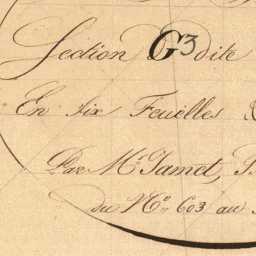 Section G3 dite
En six Feuilles
Par Mr. Jamet,
du No. 603 au